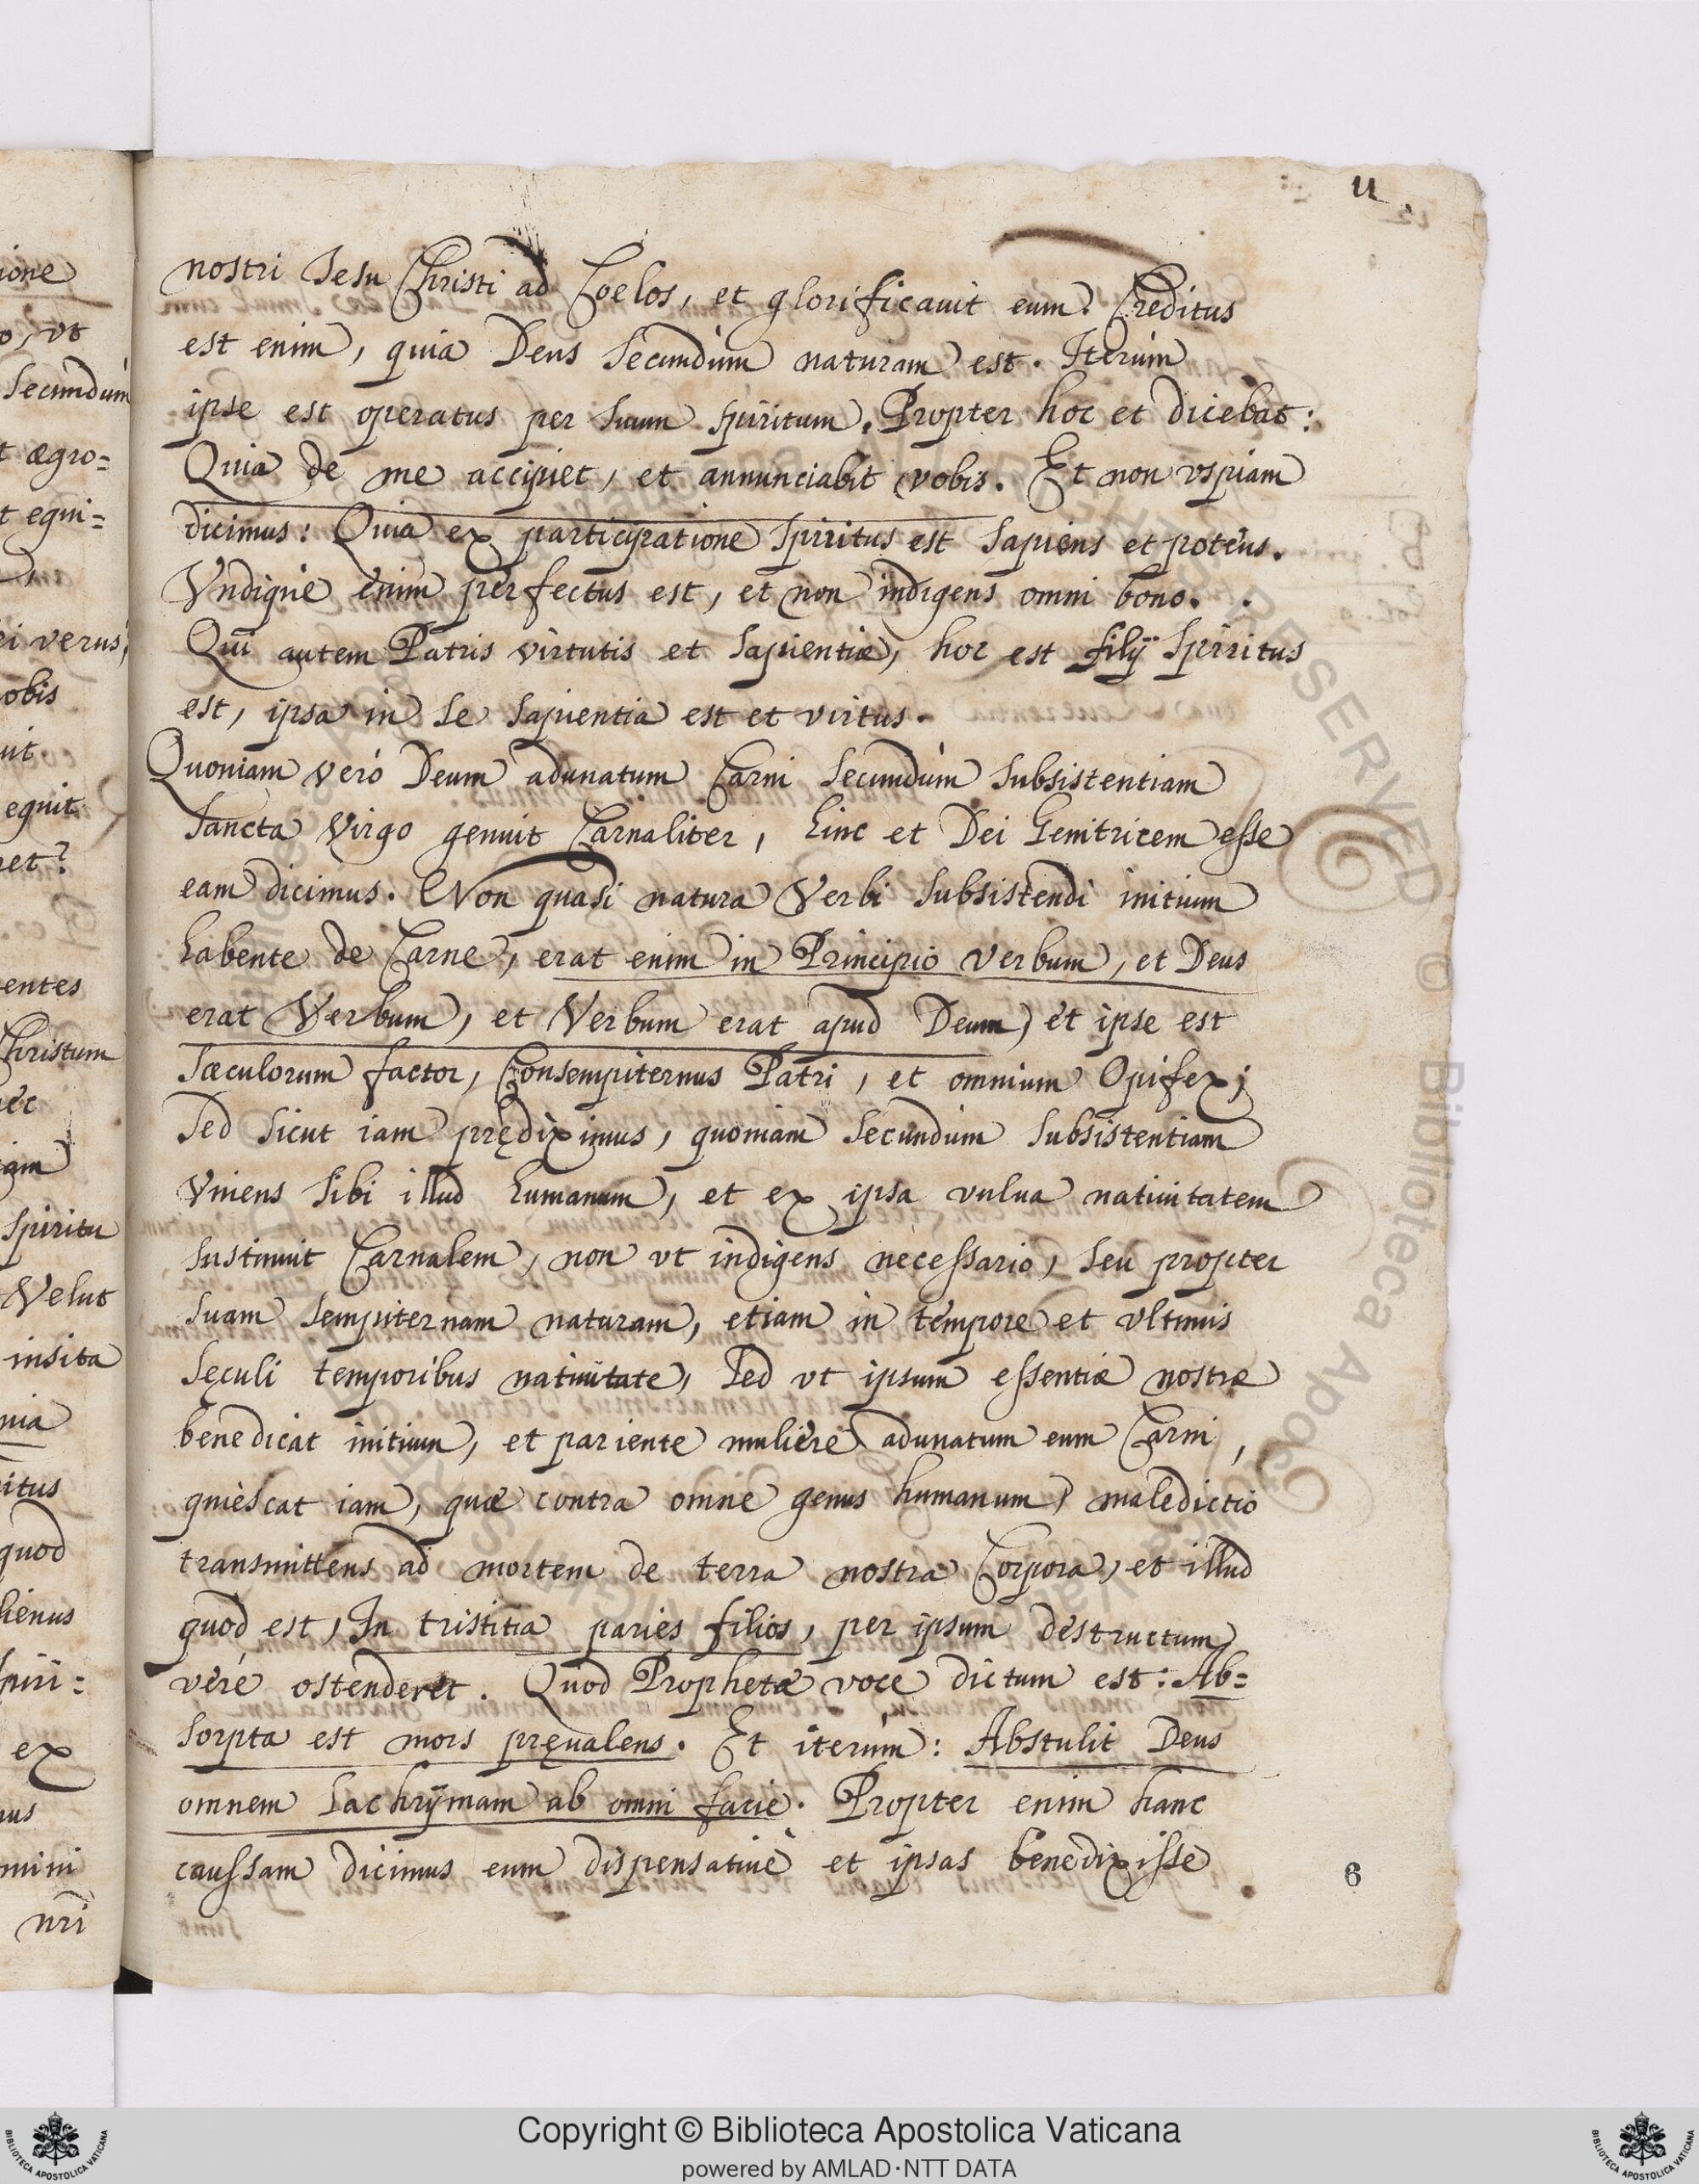 11
nostri Iesu Christi ad Coelos, et glorificauit eum? Creditus
est enim, quia Deus secundùm naturam est. Iterùm
ipse est operatus per suum spiritum. Propter hoc et dicebat:
Quia de me accipiet, et annunciabit vobis. Et non vspiam
dicimus: Quia ex participatione Spiritus est sapiens et potens.
Vndique enim perfectus est, et non indigens omni bono.
Qui autem Patris virtutis et sapientiæ, hoc est filij Spiritus
est, ipsa in se sapientia est et virtus.
Quoniam verò Deum adunatum Carni secundùm subsistentiam
sancta Virgo genuit Carnaliter, hinc et Dei Genitricem esse
eam dicimus. Non quasi natura Verbi subsistendi initium
habente de Carne, erat enim in Principio verbum, et Deus
erat Verbum, et Verbum erat apud Deum, et ipse est
sæculorum factor, Consempiternus Patri, et omnium Opifex;
Sed sicut iam prędiximus, quoniam secundùm subsistentiam
Vniens sibi illud humanum, et ex ipsa vulua natiuitatem
sustinuit Carnalem, non vt indigens necessario, seu propter
suam sempiternam naturam, etiam in tempore et vltimis
sęculi temporibus natiuitate, Sed vt ipsum essentiæ nostræ
benedicat initium, et pariente muliere adunatum eum Carni,
quièscat iam, quæ contra omne genus humanum, maledictio
transmittens ad mortem de terra nostra Corpora, et illud
quod est, In tristitia paries filios, per ipsum destructum
verè ostenderet. Quod Prophetæ voce dictum est: Ab=
sorpta est mors pręualens. Et iterùm: Abstulit Deus
omnem lachrÿmam ab omni facie. Propter enim hanc
caussam dicimus eum dispensatiuè et ipsas benedixisse
6
ione
o, vt
secundùm
t ægro=
t egui=
ei verus,
obis
uit
eguit
ret?
entes
Christum
nec
iam
Spiritu
Velut
insita
nia
ritus
quod
lienus
spiri=
ex
nus
mini
nri
RESERVED © Biblioteca Apostolica
Copyright © Biblioteca Apostolica Vaticana
powered by AMLAD·NTT DATA
BIBLIOTECA APOSTOLICA VATICANA
BIBLIOTECA APOSTOLICA VATICANA